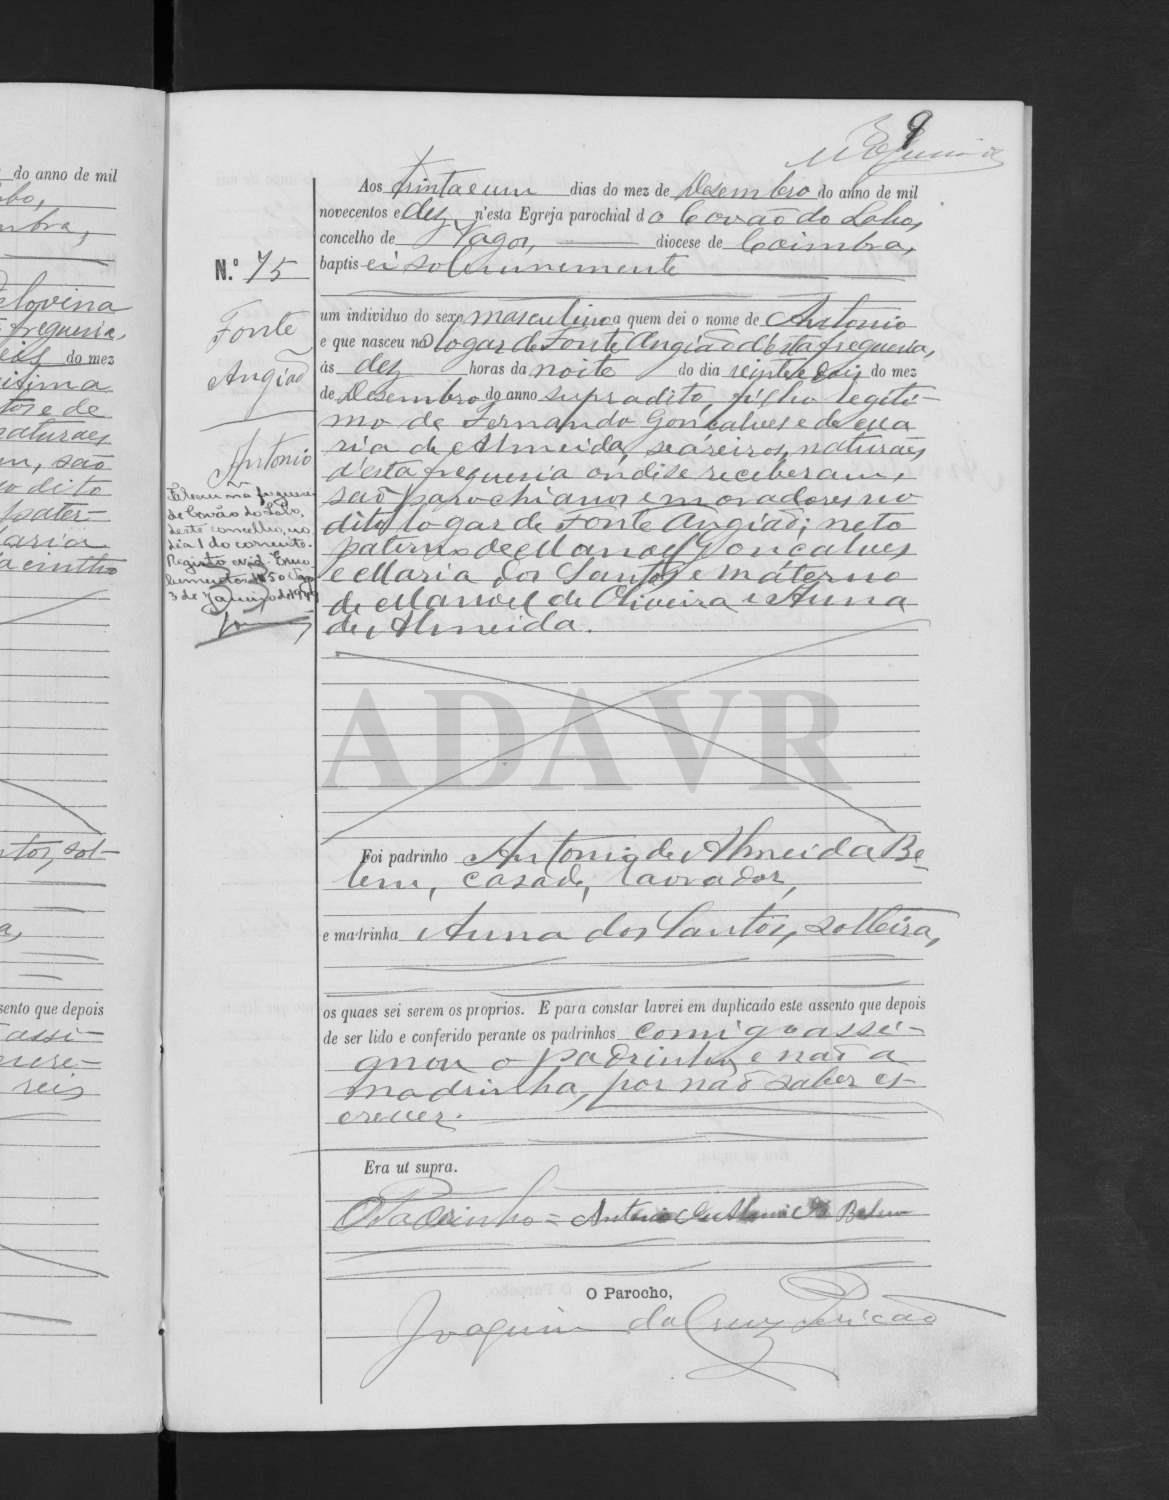 do anno de mil
mbra,
elovina
freguezia,
eis do mez
itima
tos e de
naturaes
m, são
o dito
pater-
aria
acintho
ntos, sol-
a,
sento que depois
assi-
reis
9
Aos trinta e um dias do mez de Desembro do anno de mil
novecentos e dez, n'esta Egreja parochial do Covão do Lobo,
concelho de Vagos, diocese de Coimbra,
N.º 75
baptisei solemnemente
um individuo do sexo masculino a quem dei o nome de Antonio
Fonte
e que nasceu no logar de Fonte Angião d'esta freguesia,
Angião
ás dez horas da noite do dia vinte e dois do mez
de Desembro do anno supradito, filho legiti-
mo de Fernando Gonçalves e de Ma
Antonio
ria de Almeida, seareiros, naturaes
d'esta freguesia onde se receberam,
são parochianos e moradores no
dito logar de Fonte Angião; neto
paterno de Manoel Gonçalves
e Maria dos Santos e materno
de Manoel de Oliveira e Anna
de Almeida.
Faleceu na freguesia
de Covão do Lobo,
deste concelho, no
dia 1 do corrente.
Registo
3 de Janeiro de
ADAVR
Foi padrinho Antonio de Almeida Be-
lem, casado, lavrador,
e madrinha Anna dos Santos, solteira,
os quaes sei serem os proprios. E para constar lavrei em duplicado este assento que depois
de ser lido e conferido perante os padrinhos comigo assi-
gnou o padrinho e não a
madrinha, por não saber es-
crever.
Era ut supra.
O Padrinho = Antonio de Almeida Belem
O Parocho,
Joaquim da Cruz Pericão